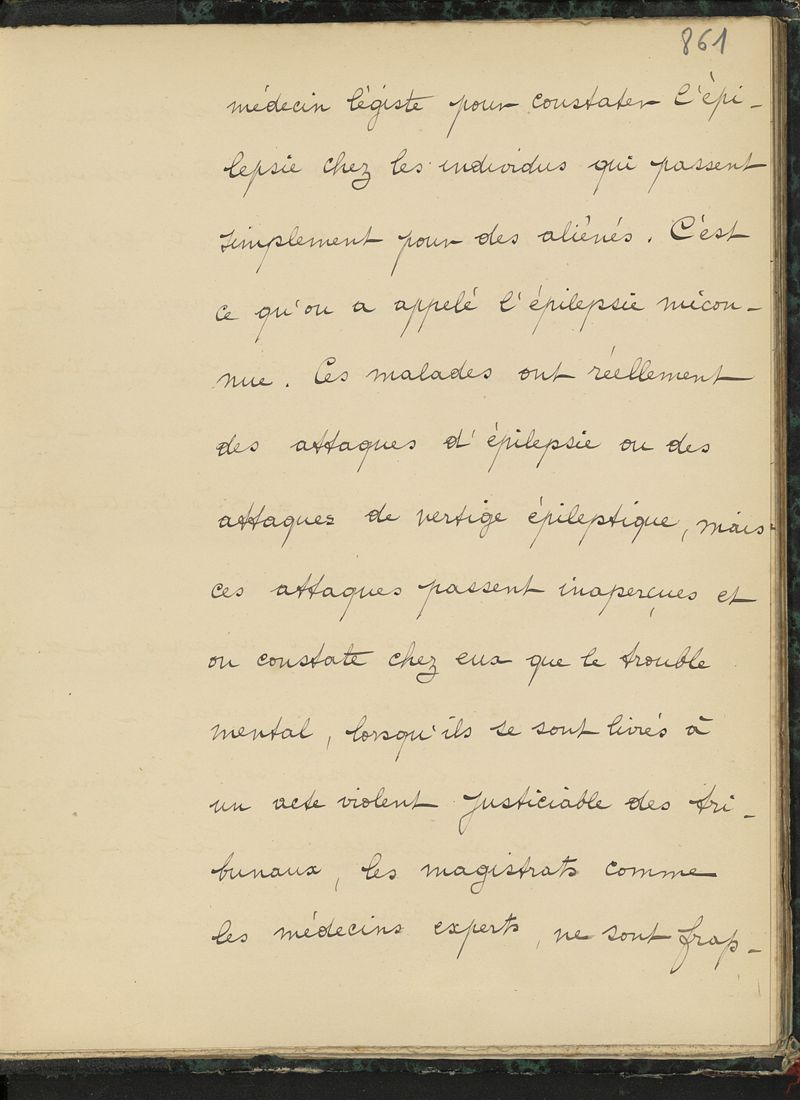 861
médecin légiste pour constater l'épi-
lepsie chez les individus qui passent
simplement pour des aliénés. C'est
ce qu'on a appelé l'épilepsie mécon-
nue. Ces malades ont réellement
des attaques d'épilepsie ou des
attaques de vertige épileptique, mais
ces attaques passent inaperçues et
on constate chez eux que le trouble
mental, lorsqu'ils se sont livrés à
un acte violent justiciable des tri-
bunaux, les magistrats comme
les médecins experts, ne sont frap-